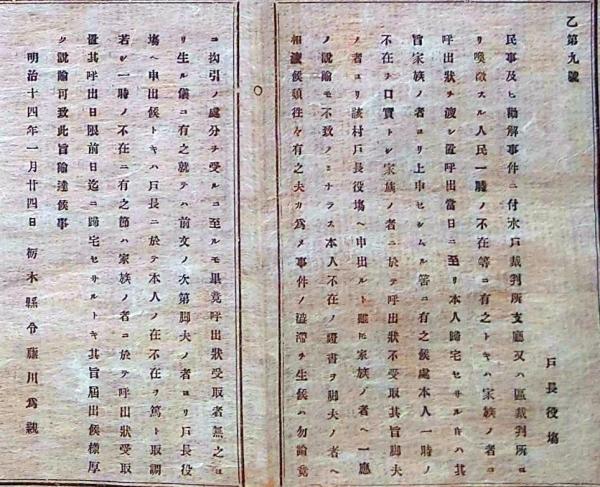 乙第九號
戸長役塲
民事及ヒ勸解事件ニ付水戸裁判所支廳又ハ區裁判所ヨ
リ喚徴スル人民一時ノ不在等ニ有之トキハ家族ノ者ニ
呼出狀ヲ渡シ置呼出當日ニ至リ本人歸宅セサルキハ其
旨家族ノ者ヨリ上申セシムル筈ニ有之候處本人一時ノ
不在ヲ口實トシ家族ノ者ニ於テ呼出狀不受取其旨脚夫
ノ者ヨリ該村戸長役塲ヘ申出ルト雖𪜈家族ノ者ヘ一應
ノ說諭モ不致ノミナラス本人不在ノ證書ヲ脚夫ノ者ヘ
相渡候領往々有之夫カ爲メ事件ノ澁滯ヲ生候ハ勿論竟
ニ拘引ノ處分ヲ受ルニ至ルモ畢竟呼出狀受取者無之ヨ
リ生ル儀ニ有之就テハ前文ノ次第脚夫ノ者ヨリ戸長役
塲ヘ申出候トキハ戸長ニ於テ本人ノ在不在ヲ篤ト取調
若シ一時ノ不在ニ有之節ハ家族ノ者ニ於テ呼出狀受取
置其呼出日限前日迄ニ歸宅セサルトキ其旨屆出候樣厚
ク說諭可致此旨諭達候事
明治十四年一月廿四日 栃木縣令藤川爲親